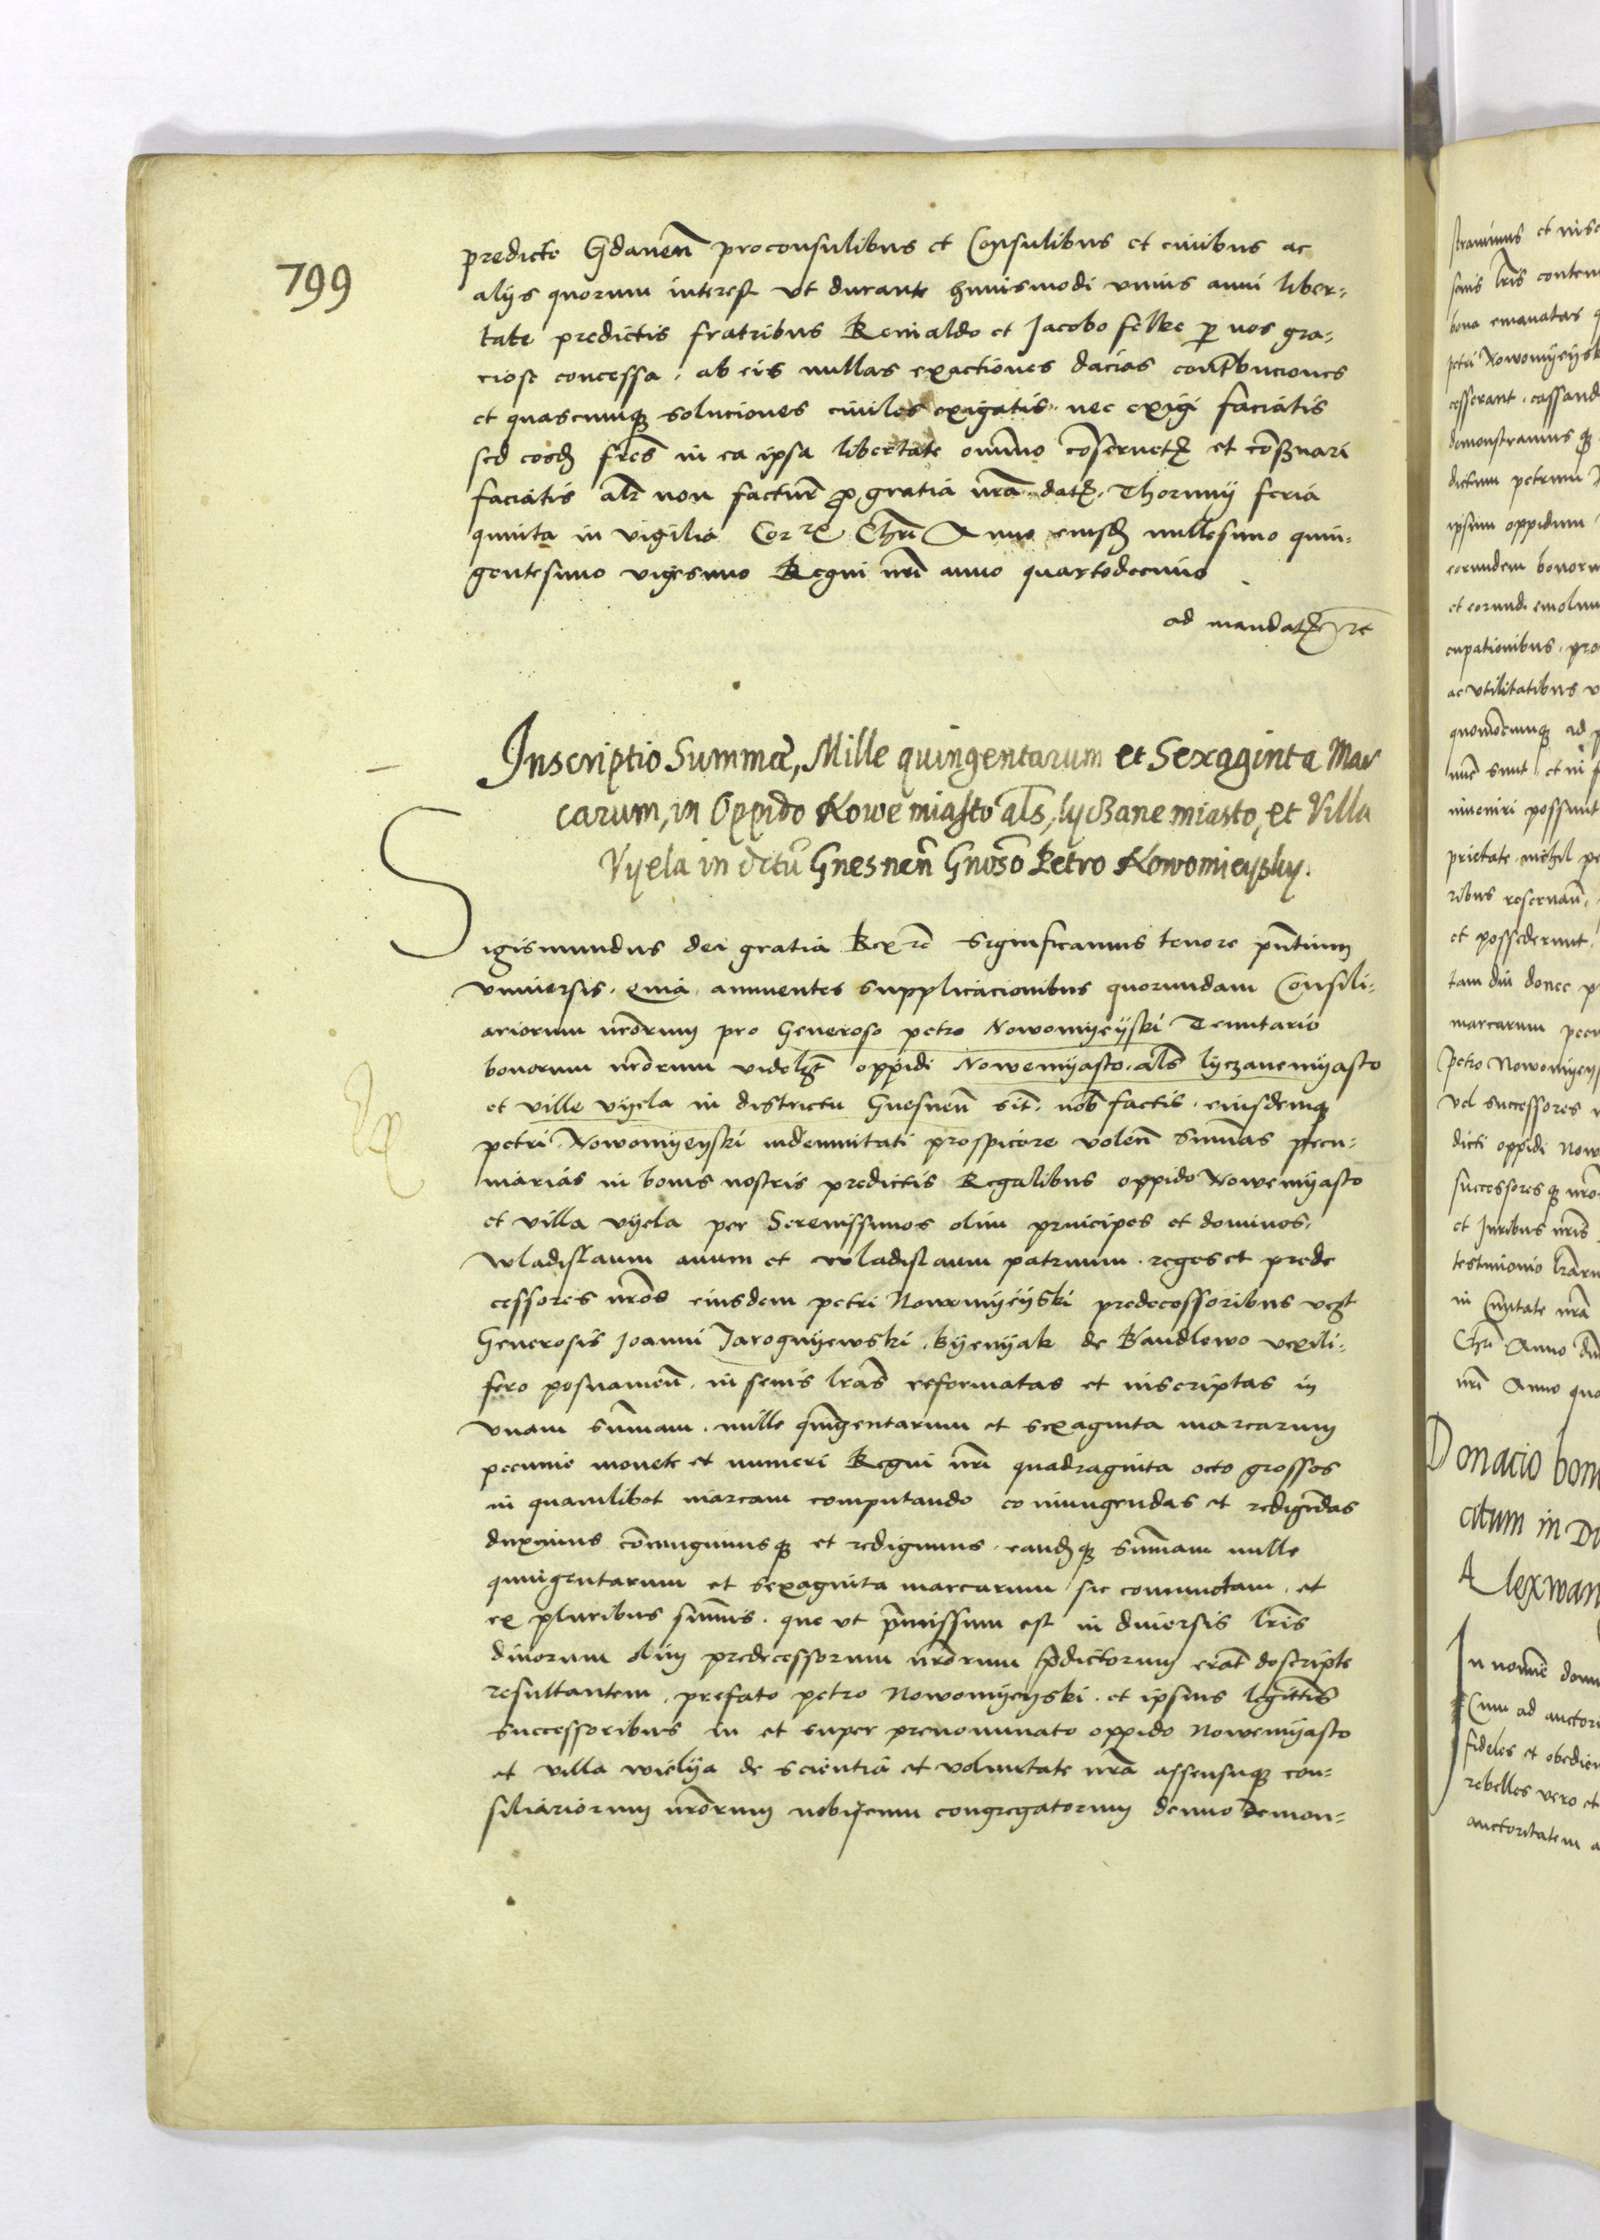 799
predicte Gdanen̄ proconsulibus et Consulibus et ciuibus ac
alijs quorum interest vt durante huiusmodi vnius anni liber-
tate predictis fratribus Reinaldo et Jacobo felke ꝑ nos gra-
ciose concessa, ab eis nullas exactiones dacias contͥbuciones
et quascunqꝫ soluciones ciuiles exigatis nec exigi faciatis
sed eosd fres̄ in ea ipsa libertate omnīo cōseruetꝭ et cōs̄uari
faciatis alr̄ non facturi ꝓ gratia nrā datꝭ Thorunij feria
quinta in vigilia Corꝑis Chri Anno eiusd millesimo quin-
gentesimo vigesimo Regni nrī anno quartodecimo
ad mandatꝭ rē
Inscriptio Summæ, Mille quingentarum et Sexaginta Mar
carum, in Oppido Nowe miasto als̄, lyczane miasto, et Villa
Vyela in dctū Gnesnen̄ Gnōso Petro Nowomieysky.
Sigismundus dei gratia Rex rē Significamus tenore pn̄tium
vniuersis, quia annuentes supplicacionibus quorundam Consili-
ariorum nrōrum pro Generoso petro Nowomyeyski Tenutario
bonorum nrōrum videlꝫt oppidi Nowemyasto als̄ lyczanemyasto
et ville vyela in districtu Gnesnen̄ sit̄. nob̄ factis, eiusdemqꝫ
petri Nowomyeyski indemnitati prospicere volen̄ sum̄as pecu-
niarias in bonis nostris predictis Regalibus oppido Nowemyasto
et villa vyela per Serenissimos olim principes et dominos,
wladislaum auum et wladislaum patruum, reges et prede
cessores nrōs eiusdem petri Nowomyeyski predecessoribus vꝫt
Generosis Joanni Jarognyewski, kyenyak de kandlewo vexili-
fero posnanien̄, in senis lrās reformatas et inscriptas in
vnam sum̄am, mille qūingentarum et sexaginta marcarum
pecunie monete et numeri Regni nrī quadraginta octo grossos
in quamlibet marcam computando coniungendas et redigēdas
duximus cōiungimusqꝫ et redigimus, eandqꝫ sum̄am mille
quingentarum et sexaginta marcarum sic coniunctam, et
ex pluribus sum̄is, que vt p̄missum est in diuersis lrīs
diuorum olim predecessorum nrōrum p̄dictorum erāt descripte
resultantem, prefato petro Nowomyeyski, et ipsius legittīs
successoribus in et super prenominato oppido Nowemyasto
et villa wielya de scientia et voluntate nrā assensuqꝫ con-
siliariorum nrōrum nobiscum congregatorum denuo demon-
stramus et
bona emanatas
petri Nowomyeysk
cesserant, cassand
demonstramus qꝫ
dictum petrum
ipsum oppidum
eorundem bonorum
et
cupationibus, pro
ac vtilitatibus v
ad p
sunt, et in f
inueniri possunt
prietate, nichil pe
ribus reseruan̄,
et possederunt,
tam diu donec p
marcarum pecu
petro Nowomyeys
vel successores
dicti oppidi Now
successoresqꝫ nrō
et Juribus nrīs
testimonio lrārum
in Ciuitate nrā
Chrī Anno dn̄
nrī Anno qua
Donacio bono
citum in Di
Alexwan
In nomie domi
Cum ad auctori
fideles et obedien
rebelles vero et
auctoritatem a